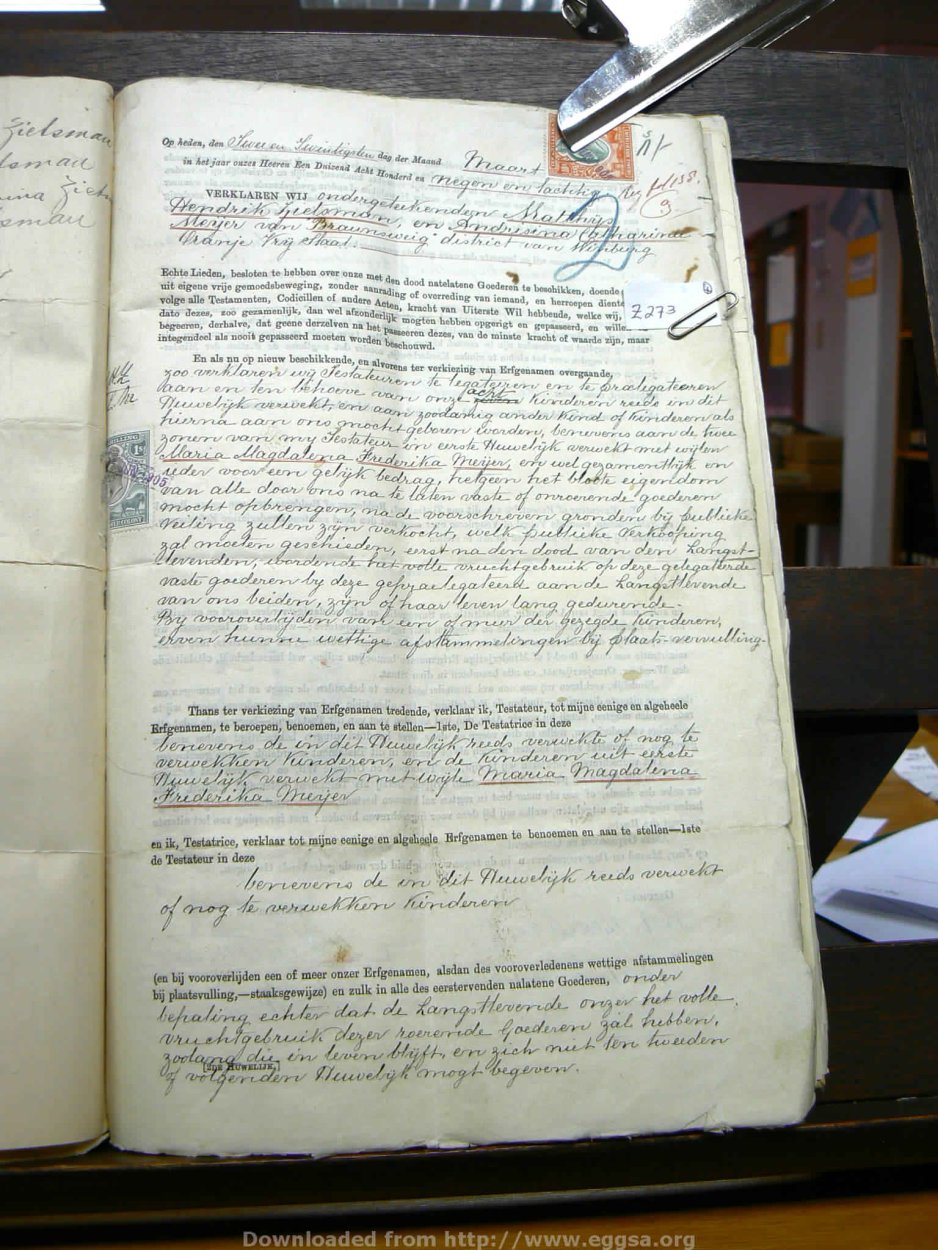 Zietsman
tsman
ina Ziets
sman
Op heden, den Twee en Twintigsten dag der Maand Maart
in het jaar onzes Heeren Een Duizend Acht Honderd en negen en tachtig
Reg
VERKLAREN WIJ ondergetekenden Matthijs
Hendrik Zietsman, en Andrisina Catharina
Meijer van Braunsweig district van Winburg
Oranje Vrij Staat.
2
Z 273
Echte Lieden, besloten te hebben over onze met den dood natelatene Goederen te beschikken, doende
uit eigene vrije gemoedsbeweging, zonder aanrading of overreding van iemand, en herroepen diente
volge alle Testamenten, Codicillen of andere Acten, kracht van Uiterste Wil hebbende, welke wij,
dato dezes, zoo gezamenlijk, dan wel afzonderlijk mogten hebben opgerigt en gepasseerd, en wille
begeeren, derhalve, dat geene derzelven na het passeeren dezes, van de minste kracht of waarde zijn, maar
integendeel als nooit gepasseerd moeten worden beschouwd.
En als nu op nieuw beschikkende, en alvorens ter verkiezing van Erfgenamen overgaande,
zoo verklaren wij Testateuren te legateren en te praelegateeren
aan en ten behoeve van onze acht kinderen reeds in dit
Huwelijk verwekt, en aan zoodanig ander kind of kinderen als
hierna aan ons mocht geboren worden, benevens aan de twee
zonen van my Testateur in eerste Huwelijk verwekt met wijlen
Maria Magdalena Frederika Meijer, en wel gezamentlijk en
ieder voor een gelijk bedrag, hetgeen het bloote eigendom
van alle door ons na te laten vaste of onroerende goederen
mocht opbrengen, na de voorschreven gronden bij publieke
veiling zullen zijn verkocht, welk publieke verkooping
zal moeten geschieden, eerst na den dood van den Langst-
levenden, wordende het volle vruchtgebruik op deze gelegateerde
vaste goederen by deze gepraelegateerd aan de Langstlevende
van ons beiden, zijn of haar leven lang gedurende.
By vooroverlijden van een of meer der gezegde kinderen,
erven hunne wettige afstammelingen bij plaats-vervulling.
Thans ter verkiezing van Erfgenamen tredende, verklaar ik, Testateur, tot mijne eenige en algeheele
Erfgenamen, te beroepen, benoemen, en aan te stellen—1ste, De Testatrice in deze
benevens de in dit Huwelijk reeds verwekte of nog te
verwekken kinderen, en de kinderen uit eerste
Huwelijk verwekt met wijle Maria Magdalena
Frederika Meijer
en ik, Testatrice, verklaar tot mijne eenige en algeheele Erfgenamen te benoemen en aan te stellen—1ste
de Testateur in deze
benevens de in dit Huwelijk reeds verwekt
of nog te verwekken kinderen
(en bij vooroverlijden een of meer onzer Erfgenamen, alsdan des vooroverledenens wettige afstammelingen
bij plaatsvulling,—staaksgewijze) en zulk in alle des eerstervenden nalatene Goederen, onder
bepaling echter dat de Langstlevende onzer het volle
vruchtgebruik dezer roerende Goederen zal hebben,
zoolang die in leven blijft, en zich niet ten tweeden
[2DE HUWELIJK.]
of volgenden Huwelijk mogt begeven.
Downloaded from http://www.eggsa.org